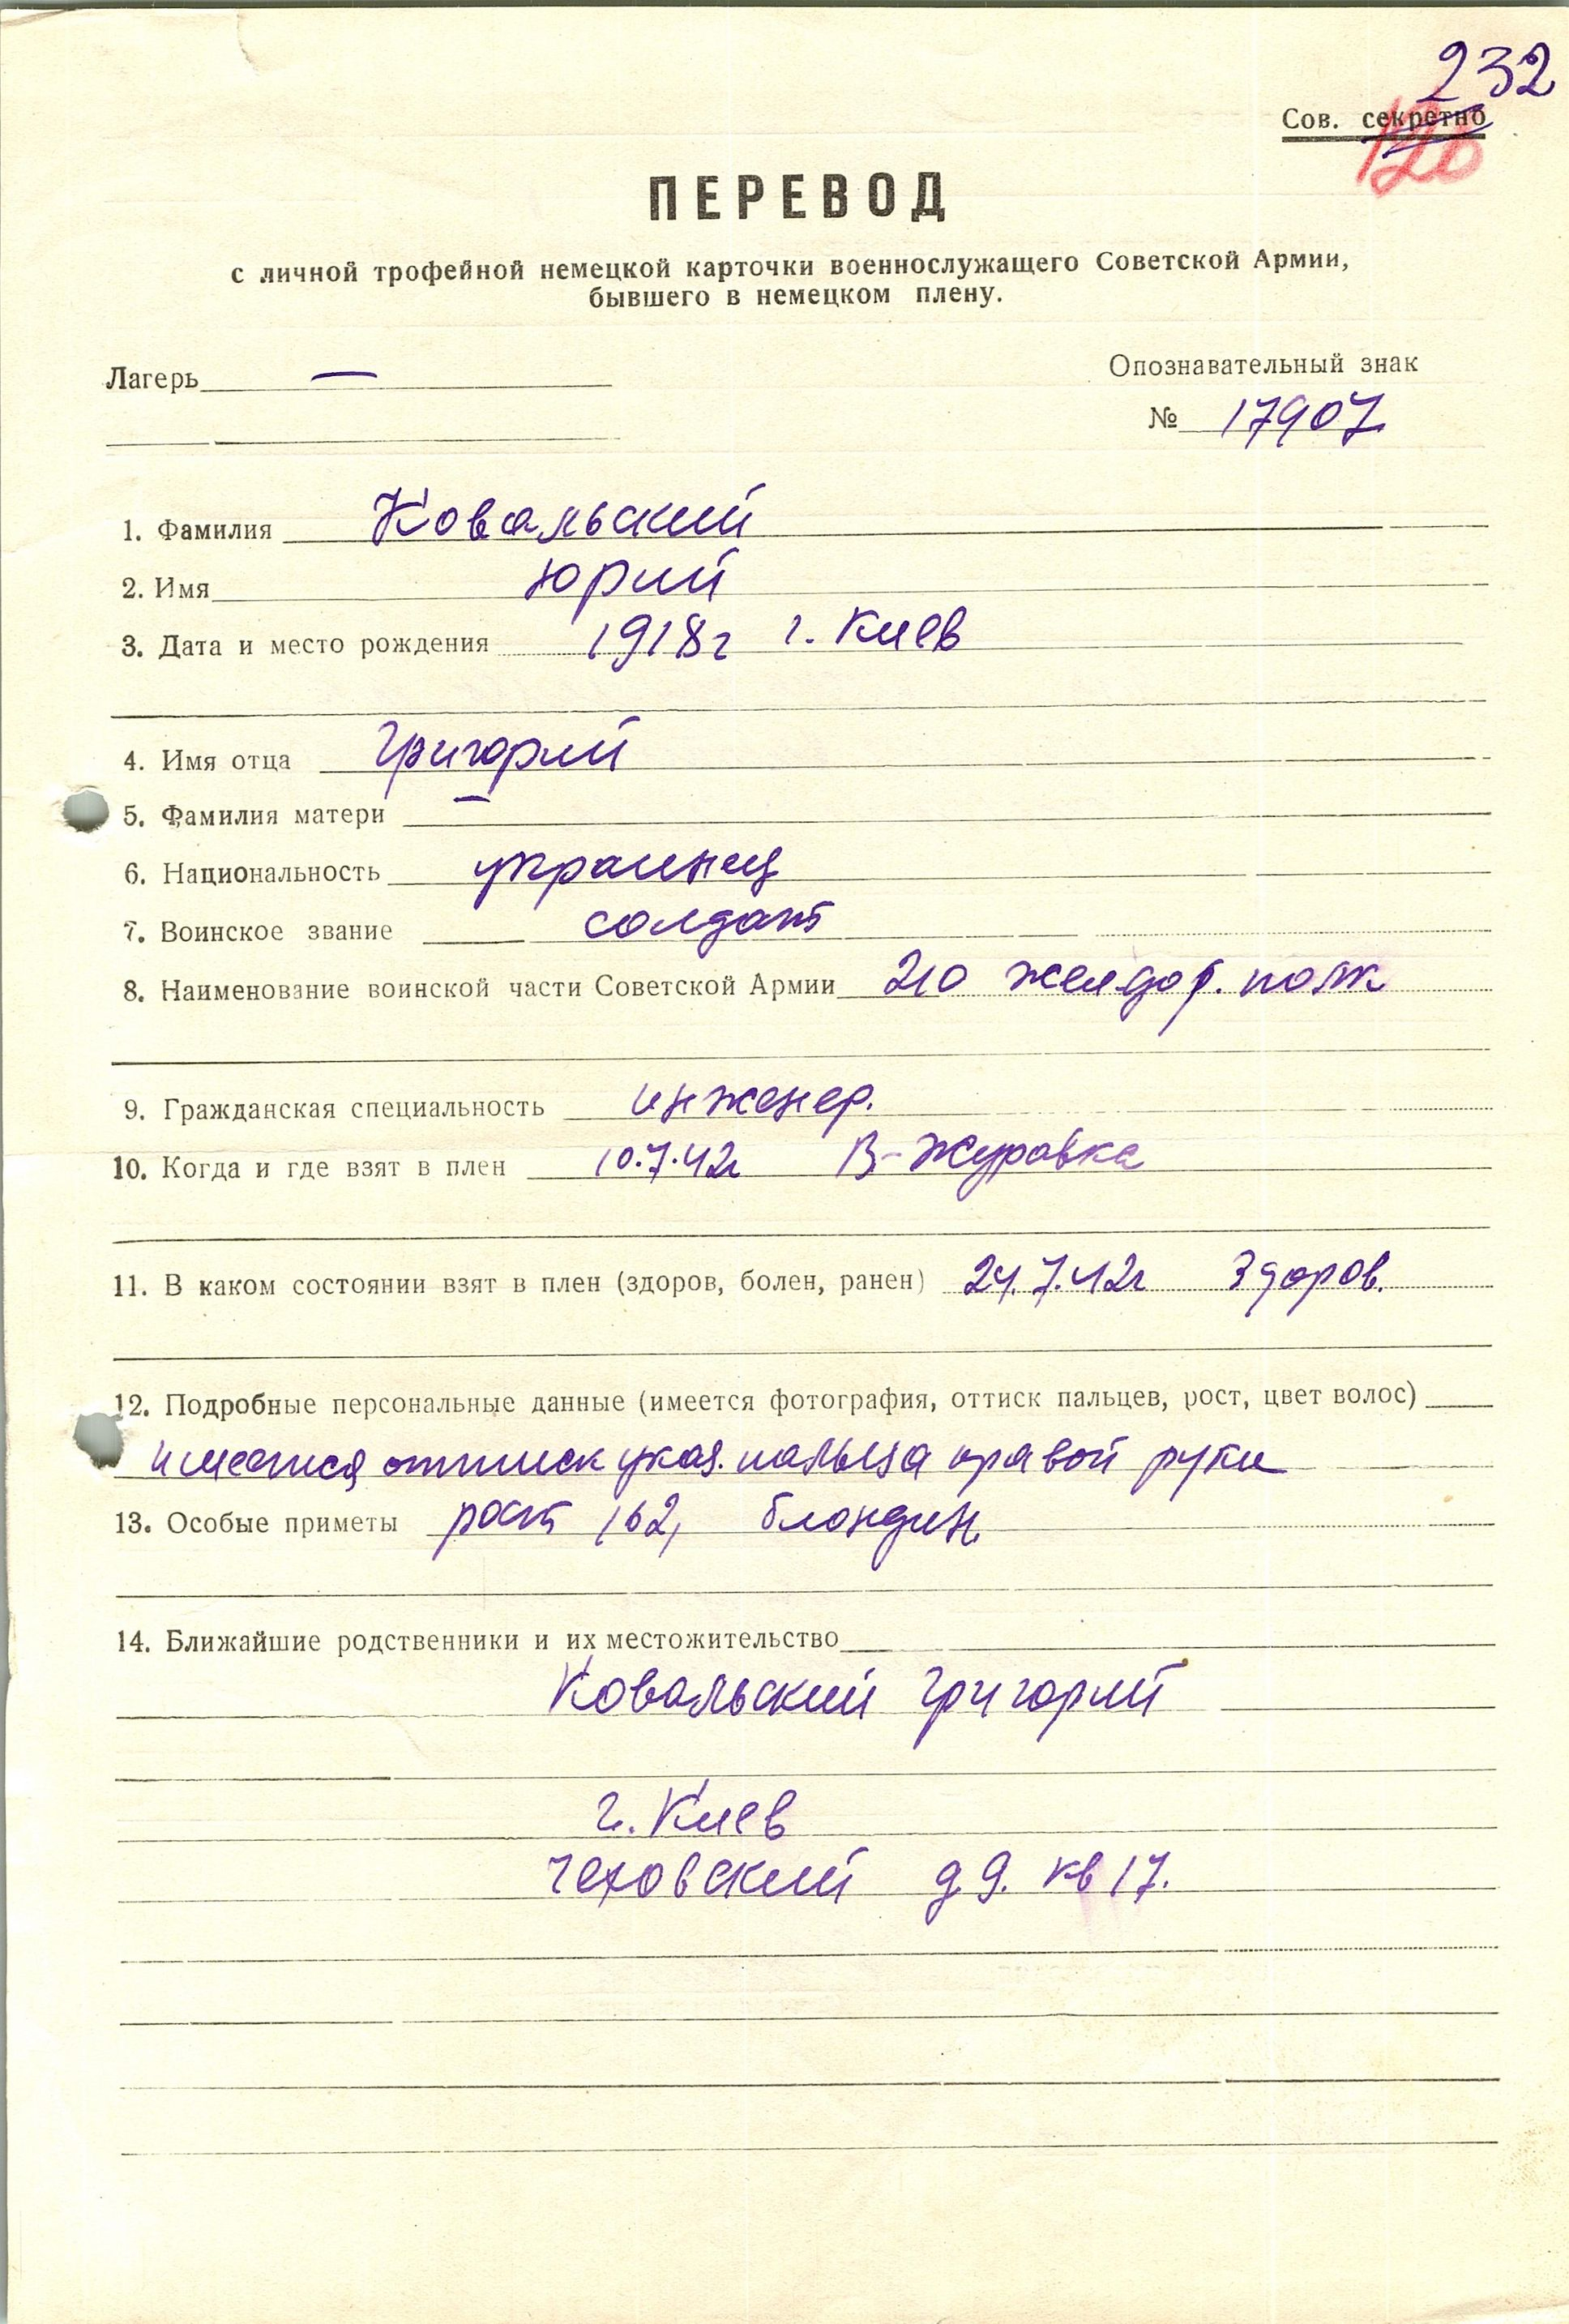 232
Сов. секретно
126
ПЕРЕВОД
с личной трофейной немецкой карточки военнослужащего Советской Армии,
бывшего в немецком плену.
Лагерь —
Опознавательный знак
№ 17907
1. Фамилия Ковальский
2. Имя Юрий
3. Дата и место рождения 1918г г. Киев
4. Имя отца Григорий
5. Фамилия матери —
6. Национальность украинец
7. Воинское звание солдат
8. Наименование воинской части Советской Армии 210 желдор. полк
9. Гражданская специальность инженер.
10. Когда и где взят в плен 10.7.42г В-Журавка
11. В каком состоянии взят в плен (здоров, болен, ранен) 24.7.42г Здоров.
12. Подробные персональные данные (имеется фотография, оттиск пальцев, рост, цвет волос)
имеется оттиск указ. пальца правой руки
13. Особые приметы рост 162, блондин.
14. Ближайшие родственники и их местожительство
Ковальский Григорий
г. Киев
Чеховский д 9. кв 17.